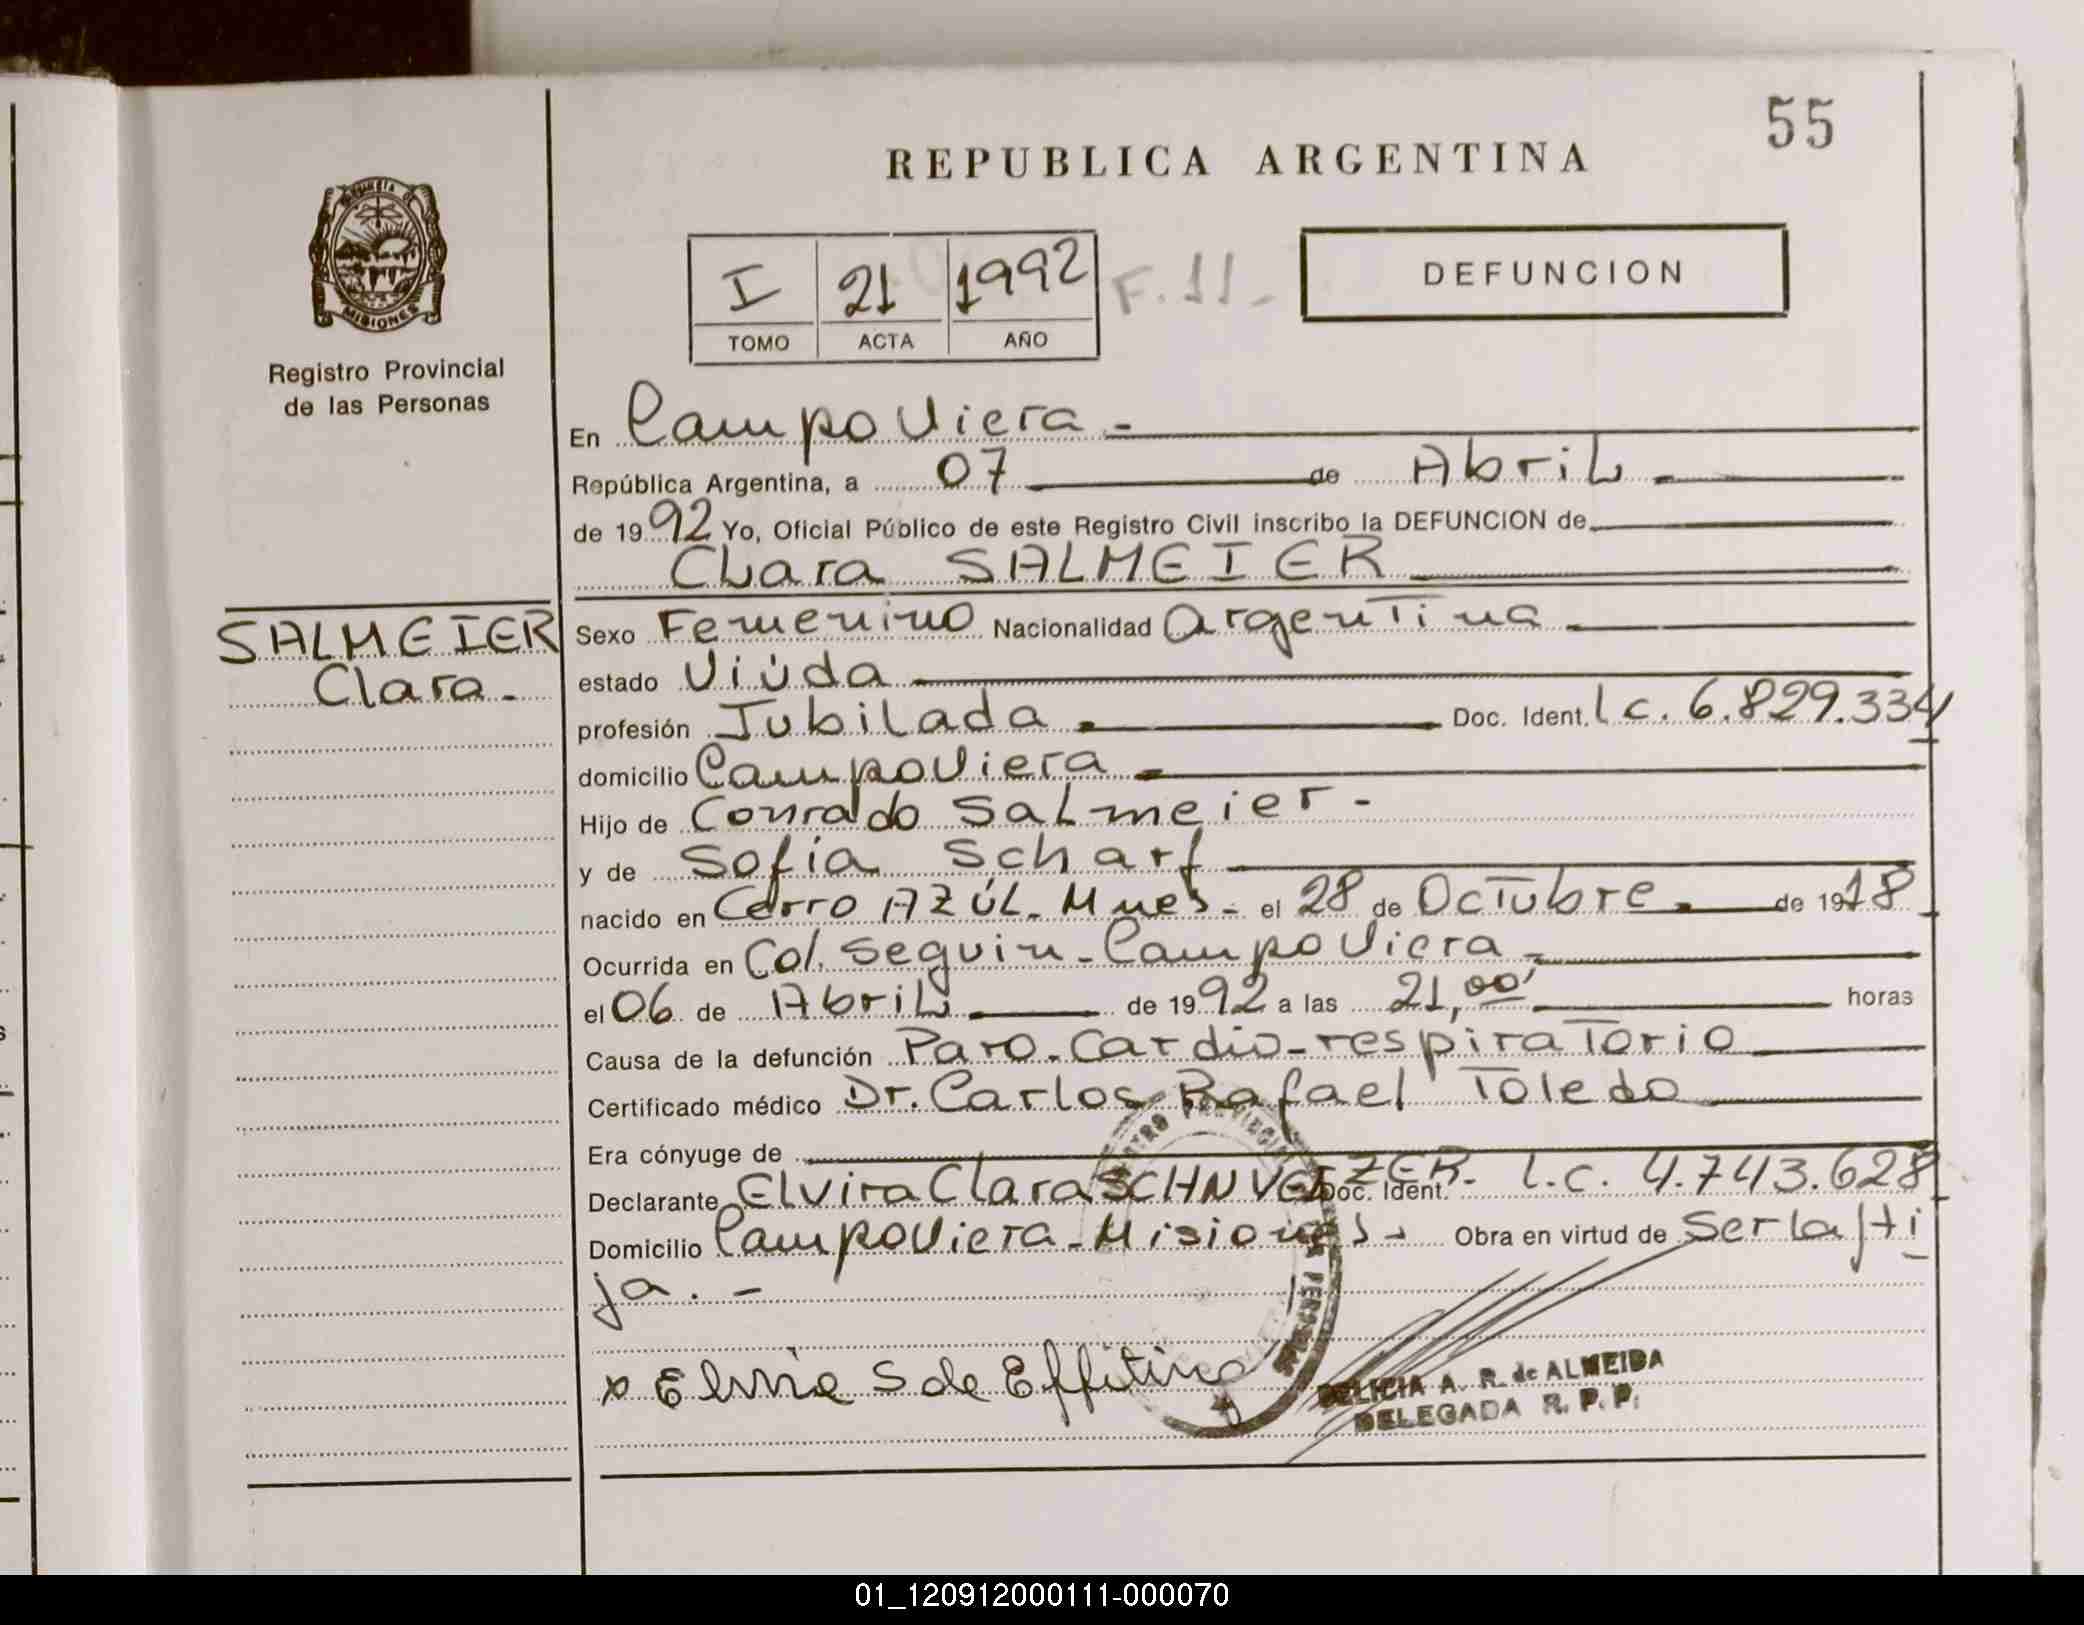 55
REPUBLICA ARGENTINA
MISIONES
I 21 1992 F.11-
TOMO ACTA AÑO
DEFUNCION
Registro Provincial
de las Personas
En Campo Viera -
República Argentina, a 07 de Abril -
de 1992 Yo, Oficial Público de este Registro Civil inscribo la DEFUNCION de
Clara SALMEIER
SALMEIER
Clara -
Sexo Femenino Nacionalidad Argentina
estado Viúda
profesión Jubilada Doc. Ident. L c. 6.829.334
domicilio Campo Viera -
Hijo de Conrado Salmeier -
y de Sofia Scharf
nacido en Cerro AZÚL - Mnes - el 28 de Octubre de 1918
Ocurrida en Col. Seguin - Campo Viera -
el 06 de Abril de 1992 a las 21,00' horas
Causa de la defunción Paro - Cardio-respiratorio
Certificado médico Dr. Carlos Rafael Toledo
Era cónyuge de
Declarante Elvira Clara Doc. Ident. L.c. 4.743.628
Domicilio Campo Viera - Misiones - Obra en virtud de Ser la Hi
ja. -
S de
DELICIA A. R. de ALMEIDA
DELEGADA R. P. P.
01_120912000111-000070